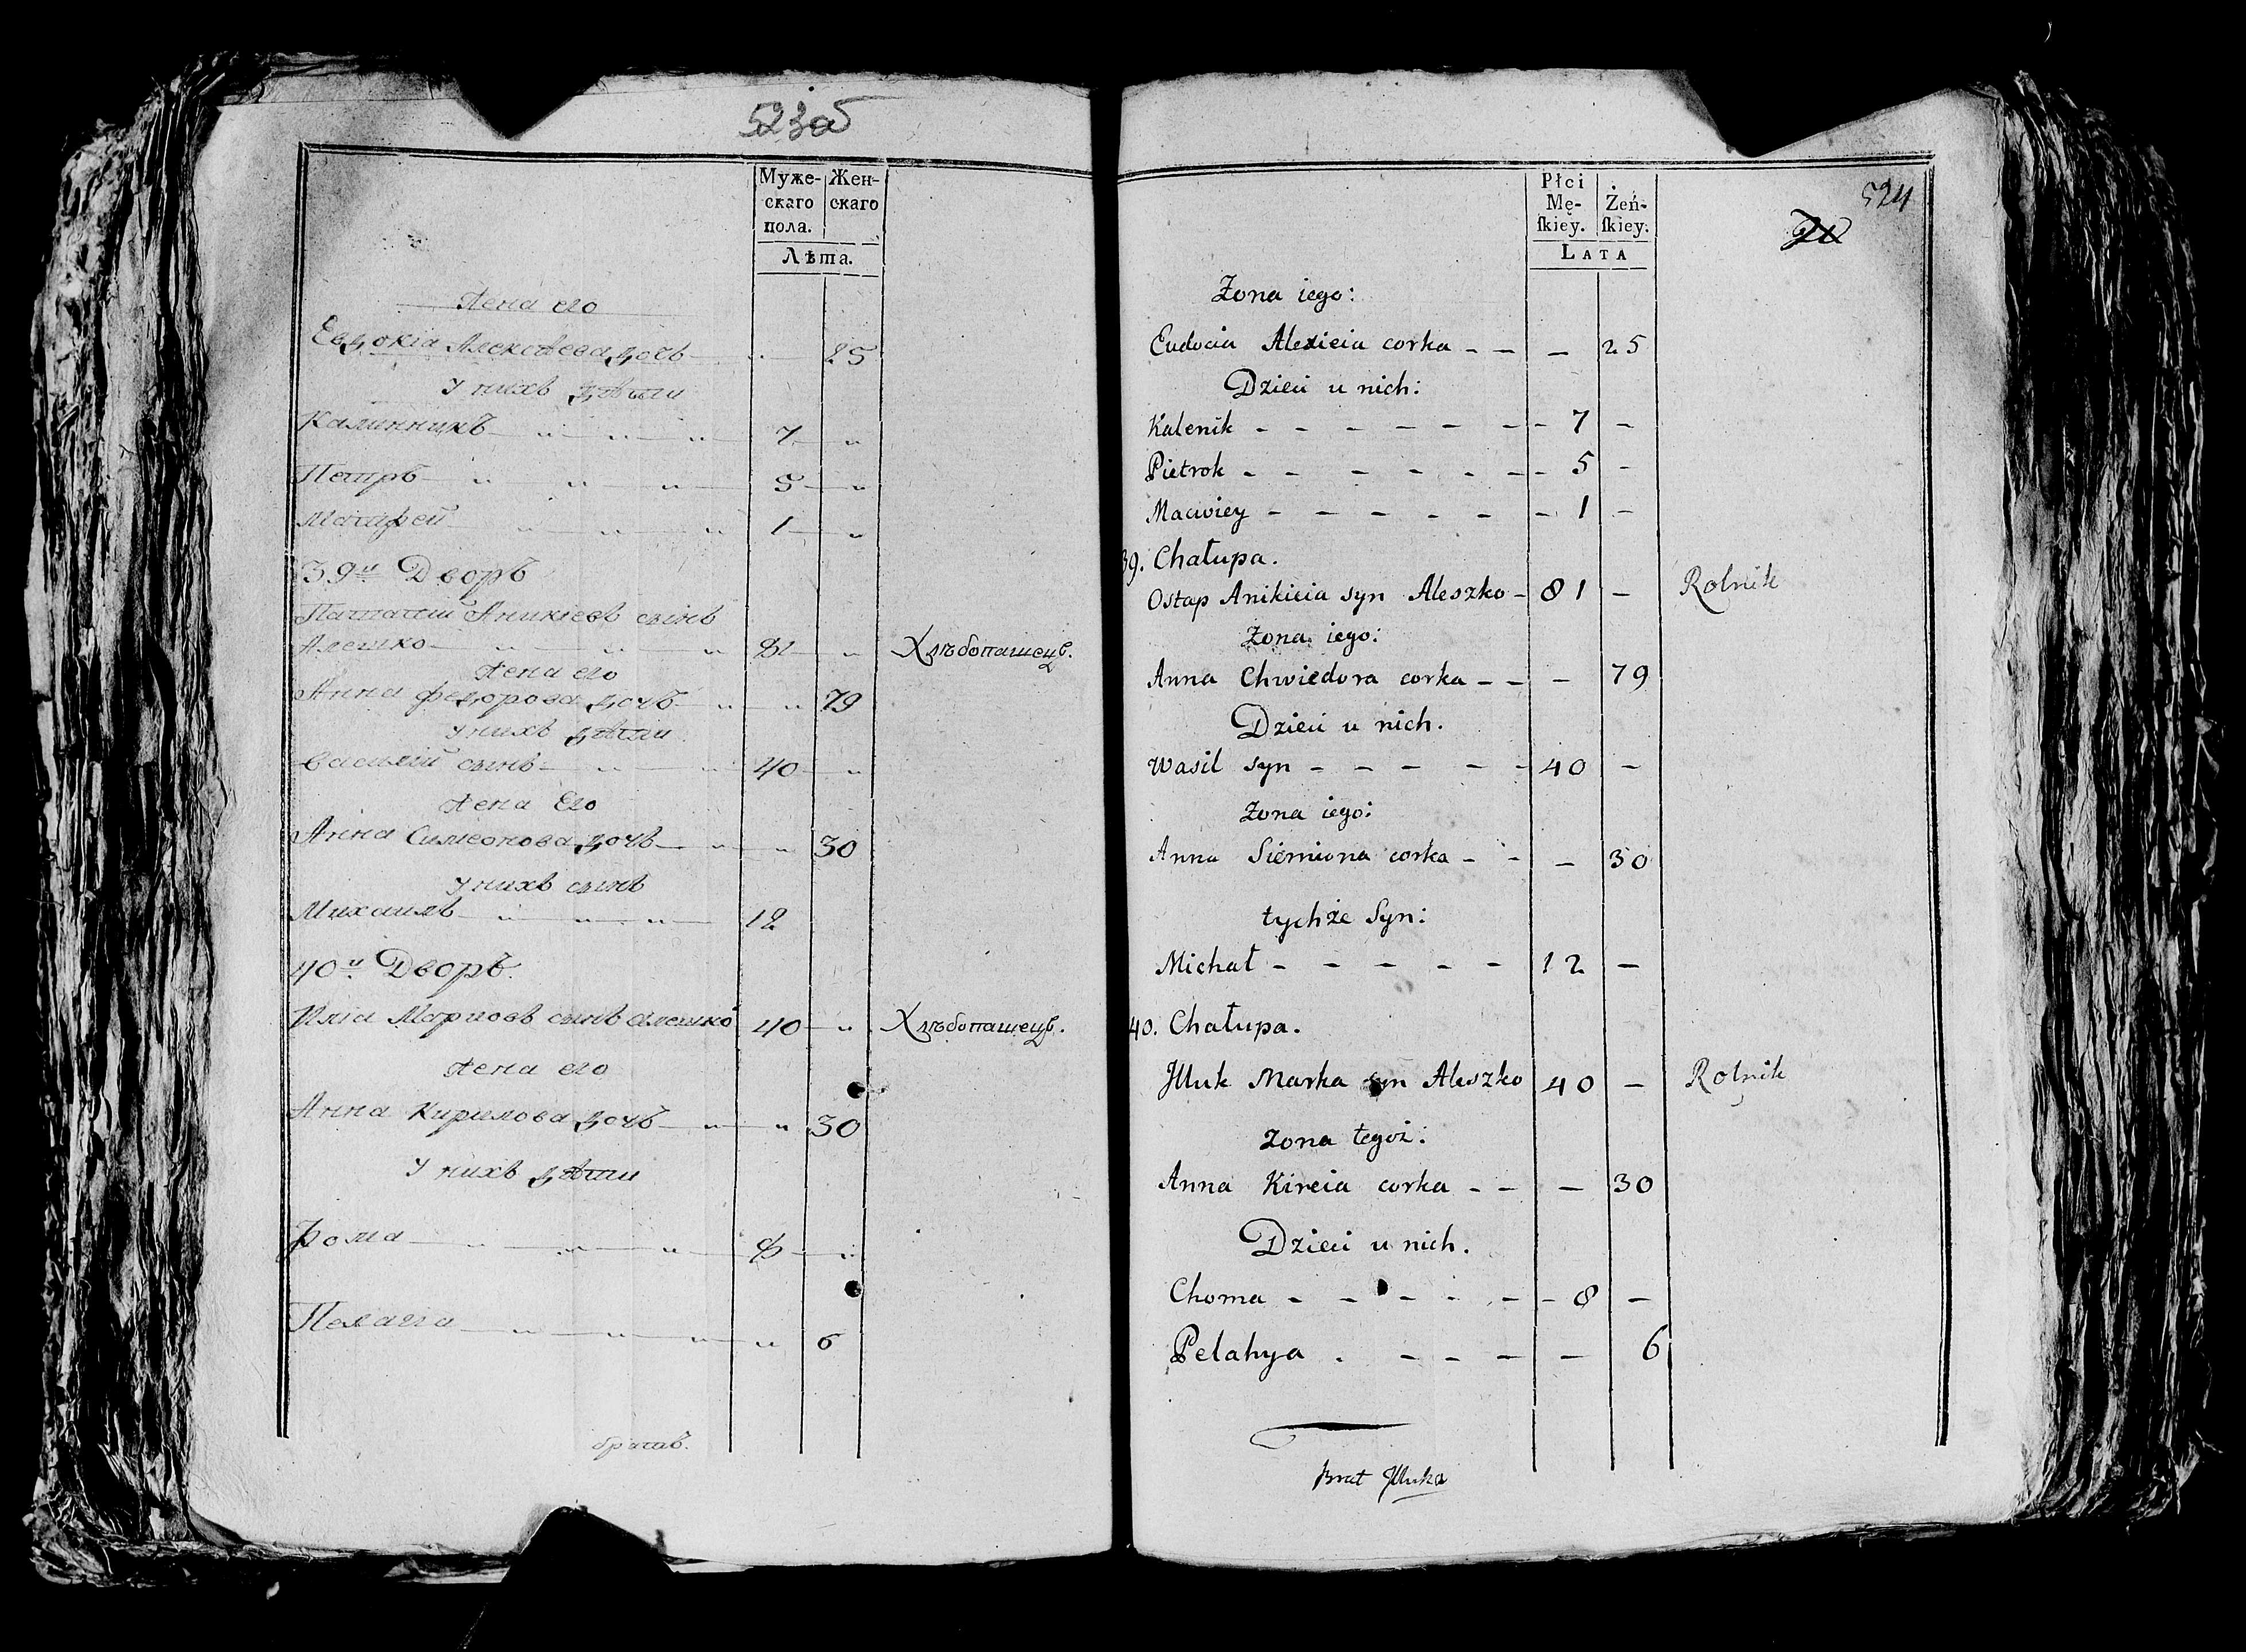 523об
Муже- Жен-
скаго скаго
пола.
Лѣта.
Жена его
Евдокіа Алексѣева дочь — " 25
У нихъ дѣти
Калинникъ — " — " — " 7 — "
Петръ — " — " — " 5 — "
Матфей — " — " — " 1 — "
39й Дворъ
Аникіевъ сынъ
Алешко — " — " — " 81 — " Хлѣбопашецъ.
Жена его
Анна Федорова дочь — " — " 79
У нихъ дѣти
Василій сынъ — " — " 40 — "
Жена Его
Анна Симеонова дочь — " — " 30
У нихъ сынъ
Михаилъ — " — " — " 12
40й Дворъ.
Иліа Марковъ сынъ Алешко 40 — " Хлѣбопашецъ.
Жена его
Анна Кирилова дочь — " — " 30
У нихъ дѣти
Фома — " — " — " 8 — "
Пелагіа — " — " — " — " 6
братъ.
524
Płci
Mę- Żeń-
ſkiey. ſkiey.
LATA
Żona iego:
Eudocia Alexieia corka - - - 25
Dzieci u nich:
Kalenik - - - - - - - 7 -
Pietrok - - - - - - - 5 -
Maciviey - - - - - - - 1 -
39. Chałupa.
Ostap Anikieia syn Aleszko - 81 - Rolnik
Żona iego:
Anna Chwiedora corka - - - 79
Dzieci u nich.
Wasil syn - - - - - 40 -
Żona iego:
Anna Siemiona corka - - - 30
tychże Syn:
Michał - - - - - 12 -
40. Chałupa.
Jlluk Marka syn Aleszko 40 - Rolnik
Zona tegoż:
Anna Kireia corka - - - 30
Dzieci u nich.
Choma - - - - - - 8 -
Pelahya . - - - - 6
Brat Jlluka